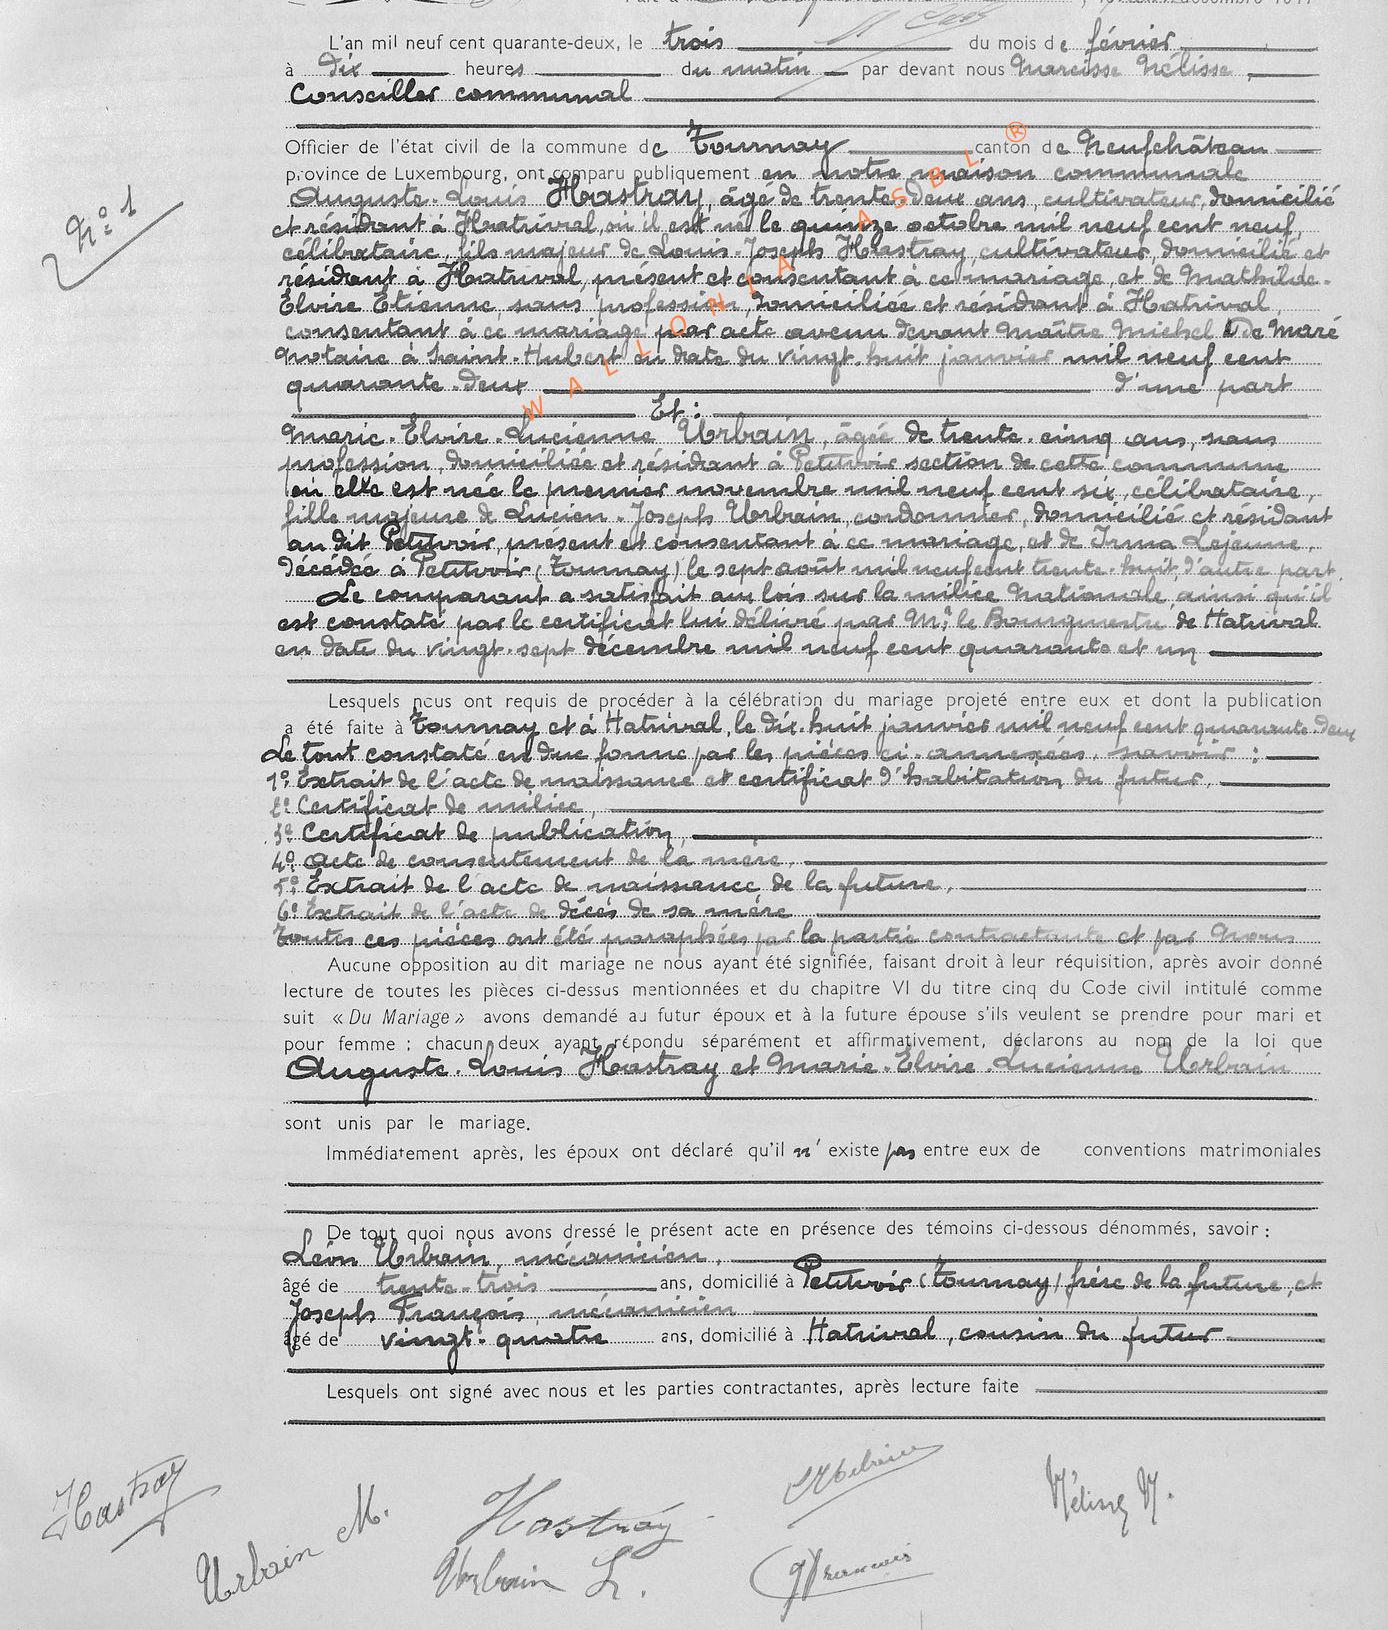 L'an mil neuf cent quarante-deux, le trois du mois de février
à dix heures du matin par devant nous Narcisse Nélisse,
Conseiller communal
Officier de l'état civil de la commune de Tournay canton de Neufchâteau
province de Luxembourg, ont comparu publiquement en notre maison communale
N° 1
Auguste-Louis Hastray, âgé de trente-deux ans, cultivateur, domicilié
et résidant à Hatrival, où il est né le quinze octobre mil neuf cent neuf,
célibataire, fils majeur de Louis-Joseph Hastray, cultivateur, domicilié et
résidant à Hatrival, présent et consentant à ce mariage, et de Mathilde-
Elvire Etienne, sans profession, domiciliée et résidant à Hatrival,
consentant à ce mariage par acte avenu devant Maître Michel De Maré
Notaire à Saint-Hubert en date du vingt-huit janvier mil neuf cent
quarante-deux d'une part
WALLONIA ASBL ®
Et :
Marie-Elvire-Lucienne Urbain, âgée de trente-cinq ans, sans
profession, domiciliée et résidant à Petitvoir section de cette commune
où elle est née le premier novembre mil neuf cent six, célibataire,
fille majeure de Lucien-Joseph Urbain, cordonnier, domicilié et résidant
au dit Petitvoir, présent et consentant à ce mariage, et de Irma Lejeune,
décédée à Petitvoir (Tournay) le sept août mil neuf cent trente-huit, d'autre part.
Le comparant a satisfait aux lois sur la milice Nationale, ainsi qu'il
est constaté par le certificat lui délivré par Mr le Bourgmestre de Hatrival
en date du vingt-sept décembre mil neuf cent quarante et un
Lesquels nous ont requis de procéder à la célébration du mariage projeté entre eux et dont la publication
a été faite à Tournay et à Hatrival, le dix-huit janvier mil neuf cent quarante-deux
Le tout constaté en due forme par les pièces ci-annexées, savoir :
1° Extrait de l'acte de naissance et certificat d'habitation du futur,
2° Certificat de milice,
3° Certificat de publication,
4° Acte de consentement de la mère,
5° Extrait de l'acte de naissance de la future,
6° Extrait de l'acte de décès de sa mère
Toutes ces pièces ont été paraphées par la partie contractante et par Nous
Aucune opposition au dit mariage ne nous ayant été signifiée, faisant droit à leur réquisition, après avoir donné
lecture de toutes les pièces ci-dessus mentionnées et du chapitre VI du titre cinq du Code civil intitulé comme
suit « Du Mariage » avons demandé au futur époux et à la future épouse s'ils veulent se prendre pour mari et
pour femme ; chacun deux ayant répondu séparément et affirmativement, déclarons au nom de la loi que
Auguste-Louis Hastray et Marie-Elvire-Lucienne Urbain
sont unis par le mariage.
Immédiatement après, les époux ont déclaré qu'il n'existe pas entre eux de conventions matrimoniales
De tout quoi nous avons dressé le présent acte en présence des témoins ci-dessous dénommés, savoir :
Léon Urbain, mécanicien,
âgé de trente-trois ans, domicilié à Petitvoir (Tournay) frère de la future, et
Joseph François, mécanicien
âgé de vingt-quatre ans, domicilié à Hatrival, cousin du futur
Lesquels ont signé avec nous et les parties contractantes, après lecture faite
Hastray
Urbain M.
Hastray
Urbain L.
L Urbain
J François
Nélisse N.